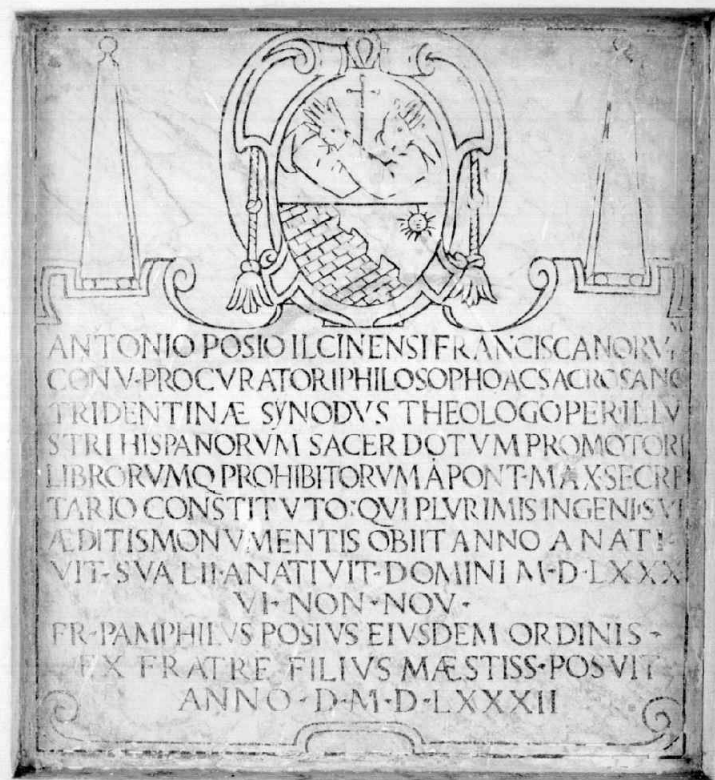 ANTONIO POSIO ILCINENSI FRANCISCANORV
CONV·PROCVRATORI PHILOSOPHO AC SACROSANC
TRIDENTINÆ SYNODVS THEOLOGO PERILLV
STRI HISPANORVM SACERDOTVM PROMOTORI
LIBRORVMQ PROHIBITORVM A PONT·MAX·SECRE
TARIO CONSTITVTO: QVI PLVRIMIS INGENII SVI
ÆDITIS MONVMENTIS OBIIT ANNO A NATI-
VIT·SVA LII·A NATIVIT·DOMINI M·D·LXXX
VI·NON·NOV·
FR·PAMPHILVS POSIVS EIVSDEM ORDINIS·
EX FRATRE FILIVS MÆSTISS·POSVIT
ANNO·D·M·D·LXXXII